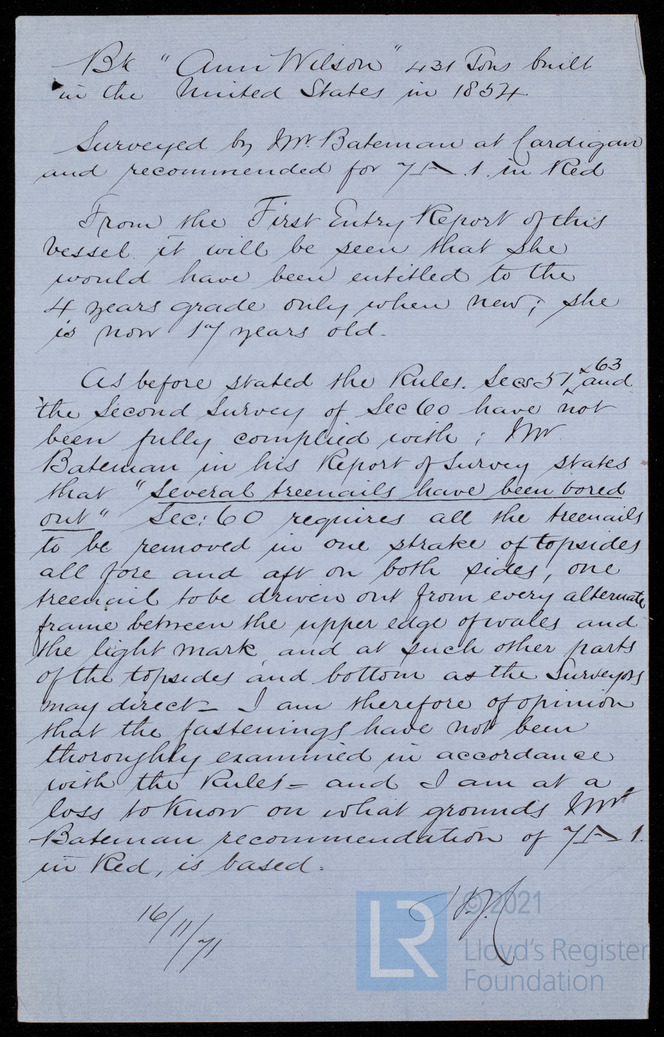 Bk "Ann Wilson" 431 Tons built
in the United States in 1854
Surveyed by Mr Bateman at Cardigan
and recommended for 7 A .1. in Red
From the First Entry Report of this
vessel it will be seen that she
would have been entitled to the
4 years grade only when new; she
is now 17 years old.
As before stated the Rules. Secs 57, 63 and
the Second Survey of Sec 60 have not
been fully complied with; Mr
Bateman in his Report of Survey states
that "Several treenails have been bored
out" Sec: 60 requires all the treenails
to be removed in one strake of topsides
all fore and aft on both sides, one
treenail to be driven out from every alternate
frame between the upper edge of wales and
the light mark and at such other parts
of the topsides and bottom as the Surveyors
may direct – I am therefore of opinion
that the fastenings have not been
thoroughly examined in accordance
with the Rules – and I am at a
loss to know on what grounds Mr
Bateman recommendation of 7 A 1.
in Red, is based.
16/11/71
LR
© 2021
Lloyd's Register
Foundation